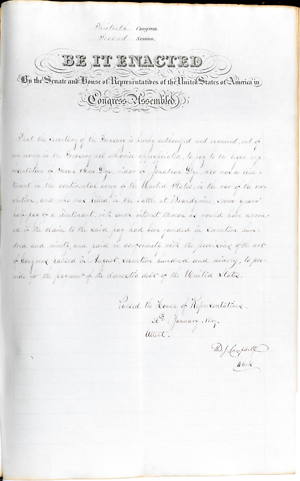 Thirtieth Congress
Second Session
BE IT ENACTED
By the Senate and House of Representatives of the United States of America in
Congress Assembled,
That the Secretary of the Treasury is hereby authorized and required, out of
any money in the Treasury not otherwise appropriated, to pay to the legal rep-
resentatives of
tenant in the continental army of the United States, in the war of the revo-
lution, and who was killed in the battle at Brandywine, seven years'
half pay of a lieutenant, with such interest thereon as would have accru-
ed in the claim to the said pay had been funded in Seventeen hun-
dred and ninety and paid in conformity with the provisions of the act
of Congress passed in August, Seventeen hundred and ninety, to pro-
vide for the payment of the domestic debt of the United States.
Passed the House of Representatives
January
Attest.
Campbell
Clerk